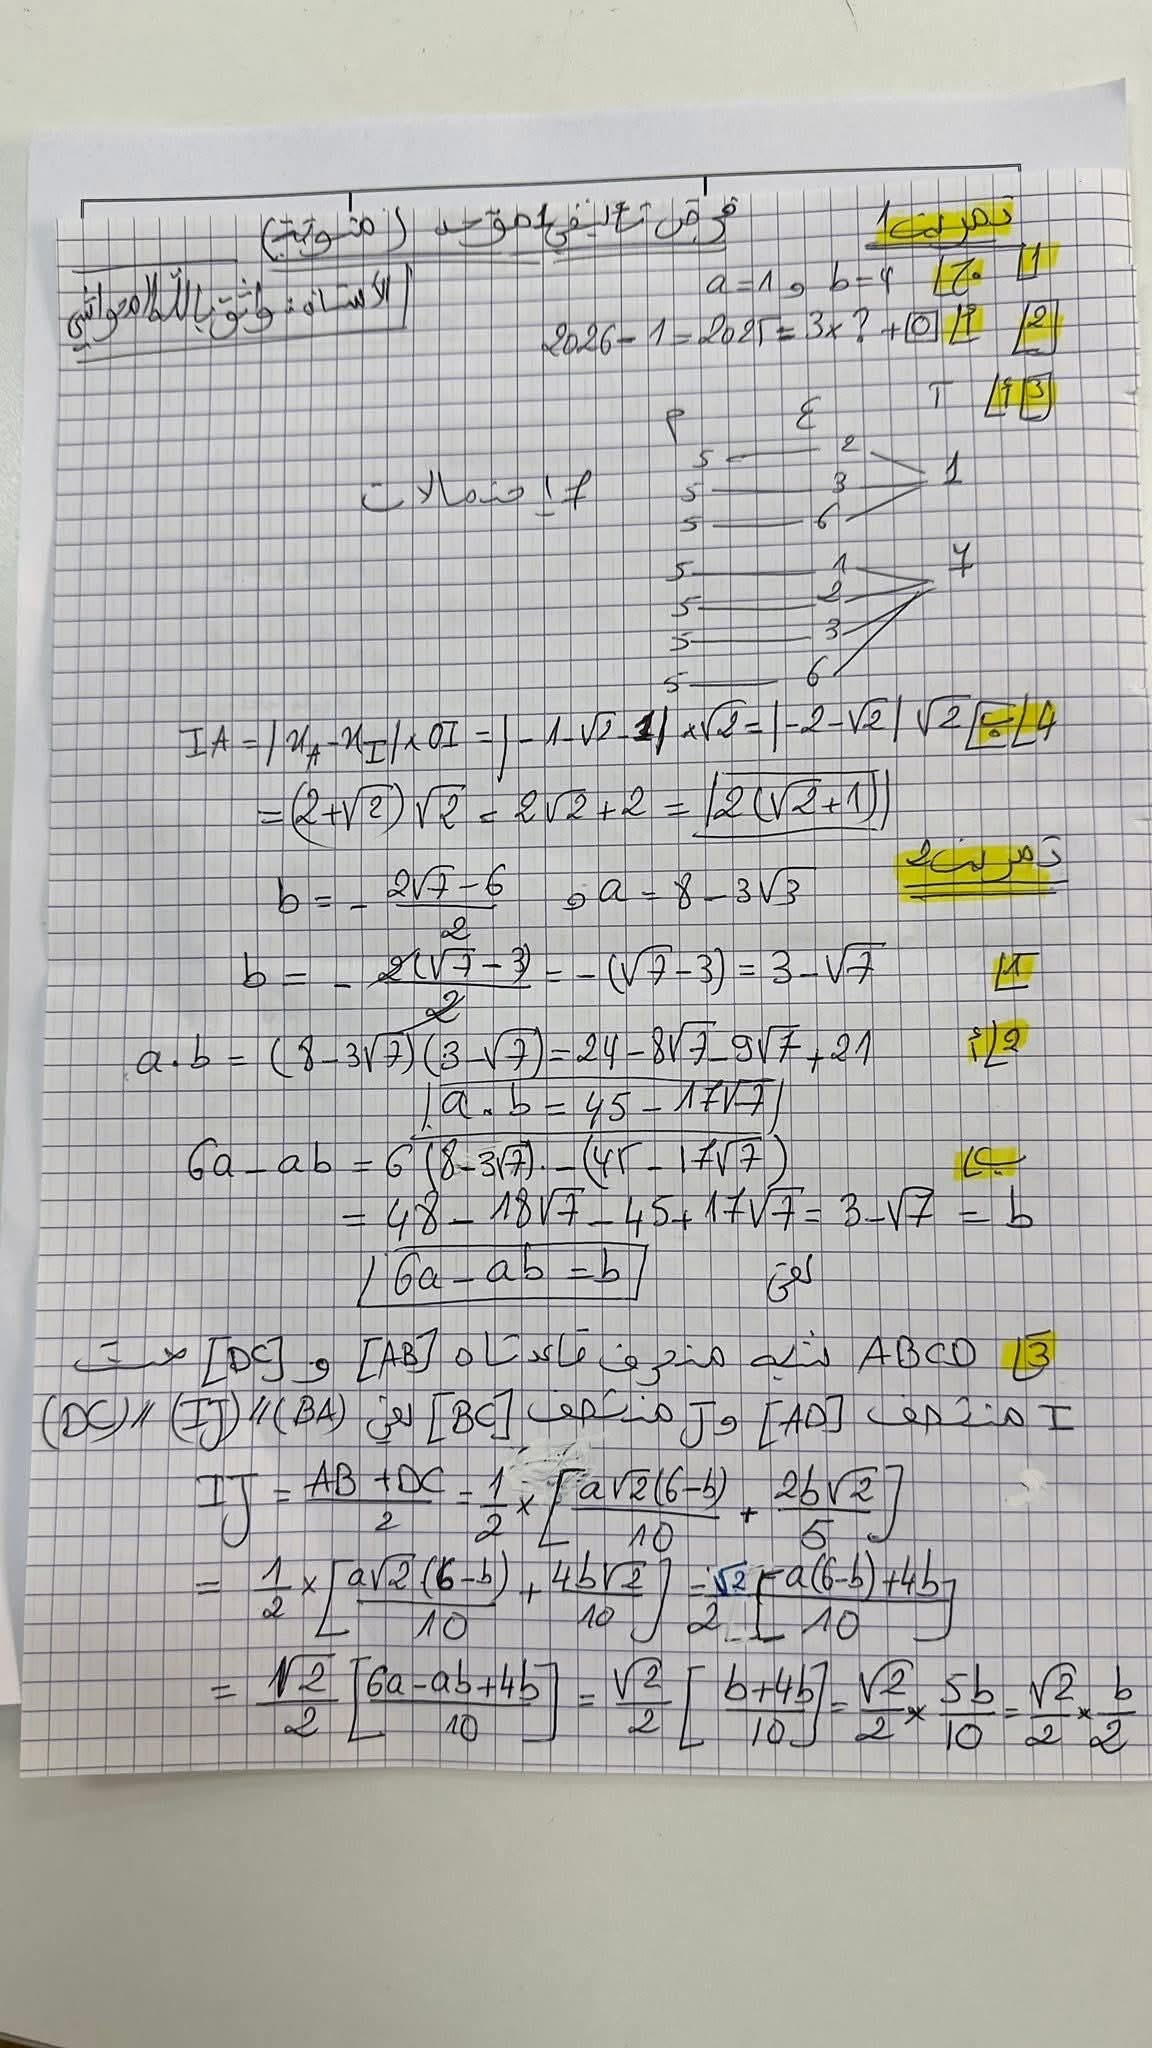 فرض تأليفي 1 موحد (منوبة)
تمرين 1
1) ج) a = 1 و b = 4
2) أ) 2026 - 1 = 2025 = 3 x ? + 0
3) أ)
5 — 2
5 — 3 — 1
5 — 6
5 — 1
5 — 2 — 7
5 — 3
5 — 6
7 إحتمالات
4) ب) IA = |x_A - x_I| × OI = |-1-√2-1| × √2 = |-2-√2| √2
= (2+√2) √2 = 2√2 + 2 = 2(√2+1)
تمرين 2
a = 8 - 3√3 و b = - (2√7 - 6)/2
1) b = - 2(√7 - 3)/2 = -(√7 - 3) = 3 - √7
2) أ) a.b = (8 - 3√7)(3 - √7) = 24 - 8√7 - 9√7 + 21
a.b = 45 - 17√7
ب) 6a - ab = 6(8 - 3√7) - (45 - 17√7)
= 48 - 18√7 - 45 + 17√7 = 3 - √7 = b
إذن 6a - ab = b
3) ABCD شبه منحرف قاعدتاه [AB] و [DC] حيث
I منتصف [AD] و J منتصف [BC] إذن (BA) // (IJ) // (DC)
IJ = (AB + DC)/2 = 1/2 × [a√2(6-b)/10 + 2b√2/5]
= 1/2 × [a√2(6-b)/10 + 4b√2/10] = √2/2 [a(6-b)+4b/10]
= √2/2 [6a-ab+4b/10] = √2/2 [b+4b/10] = √2/2 × 5b/10 = √2/2 × b/2